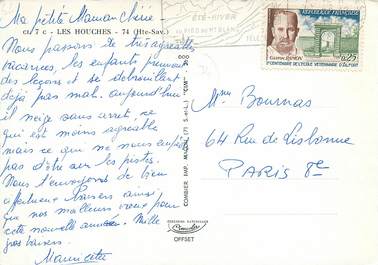 Ma petite Maman Chérie
CI 7 C - LES HOUCHES - 74 (Hte-Sav.)
Nous passons de très agréables
vacances, les enfants prennent
des leçons et se débrouillent
déjà pas mal. aujourd'hui
il neige sans arrêt, ce
qui est moins agréable
mais ce qui ne nous empêche
pas d'être sur les pistes.
Nous t'envoyons de bien
affectueux baisers ainsi
que nos meilleurs vœux pour
cette nouvelle année. Mille
gros baisers.
COMBIER IMP. MACON (7) S.-et-L.) "CIM"
EDITIONS NATURELLES
Combier
OFFSET
ÉTÉ-HIVER
REPUBLIQUE FRANÇAISE
0,25
GASTON RAMON
2e CENTENAIRE DE L'ECOLE VETERINAIRE D'ALFORT
Mme Bournas
64 Rue de Lisbonne
PARIS 8e